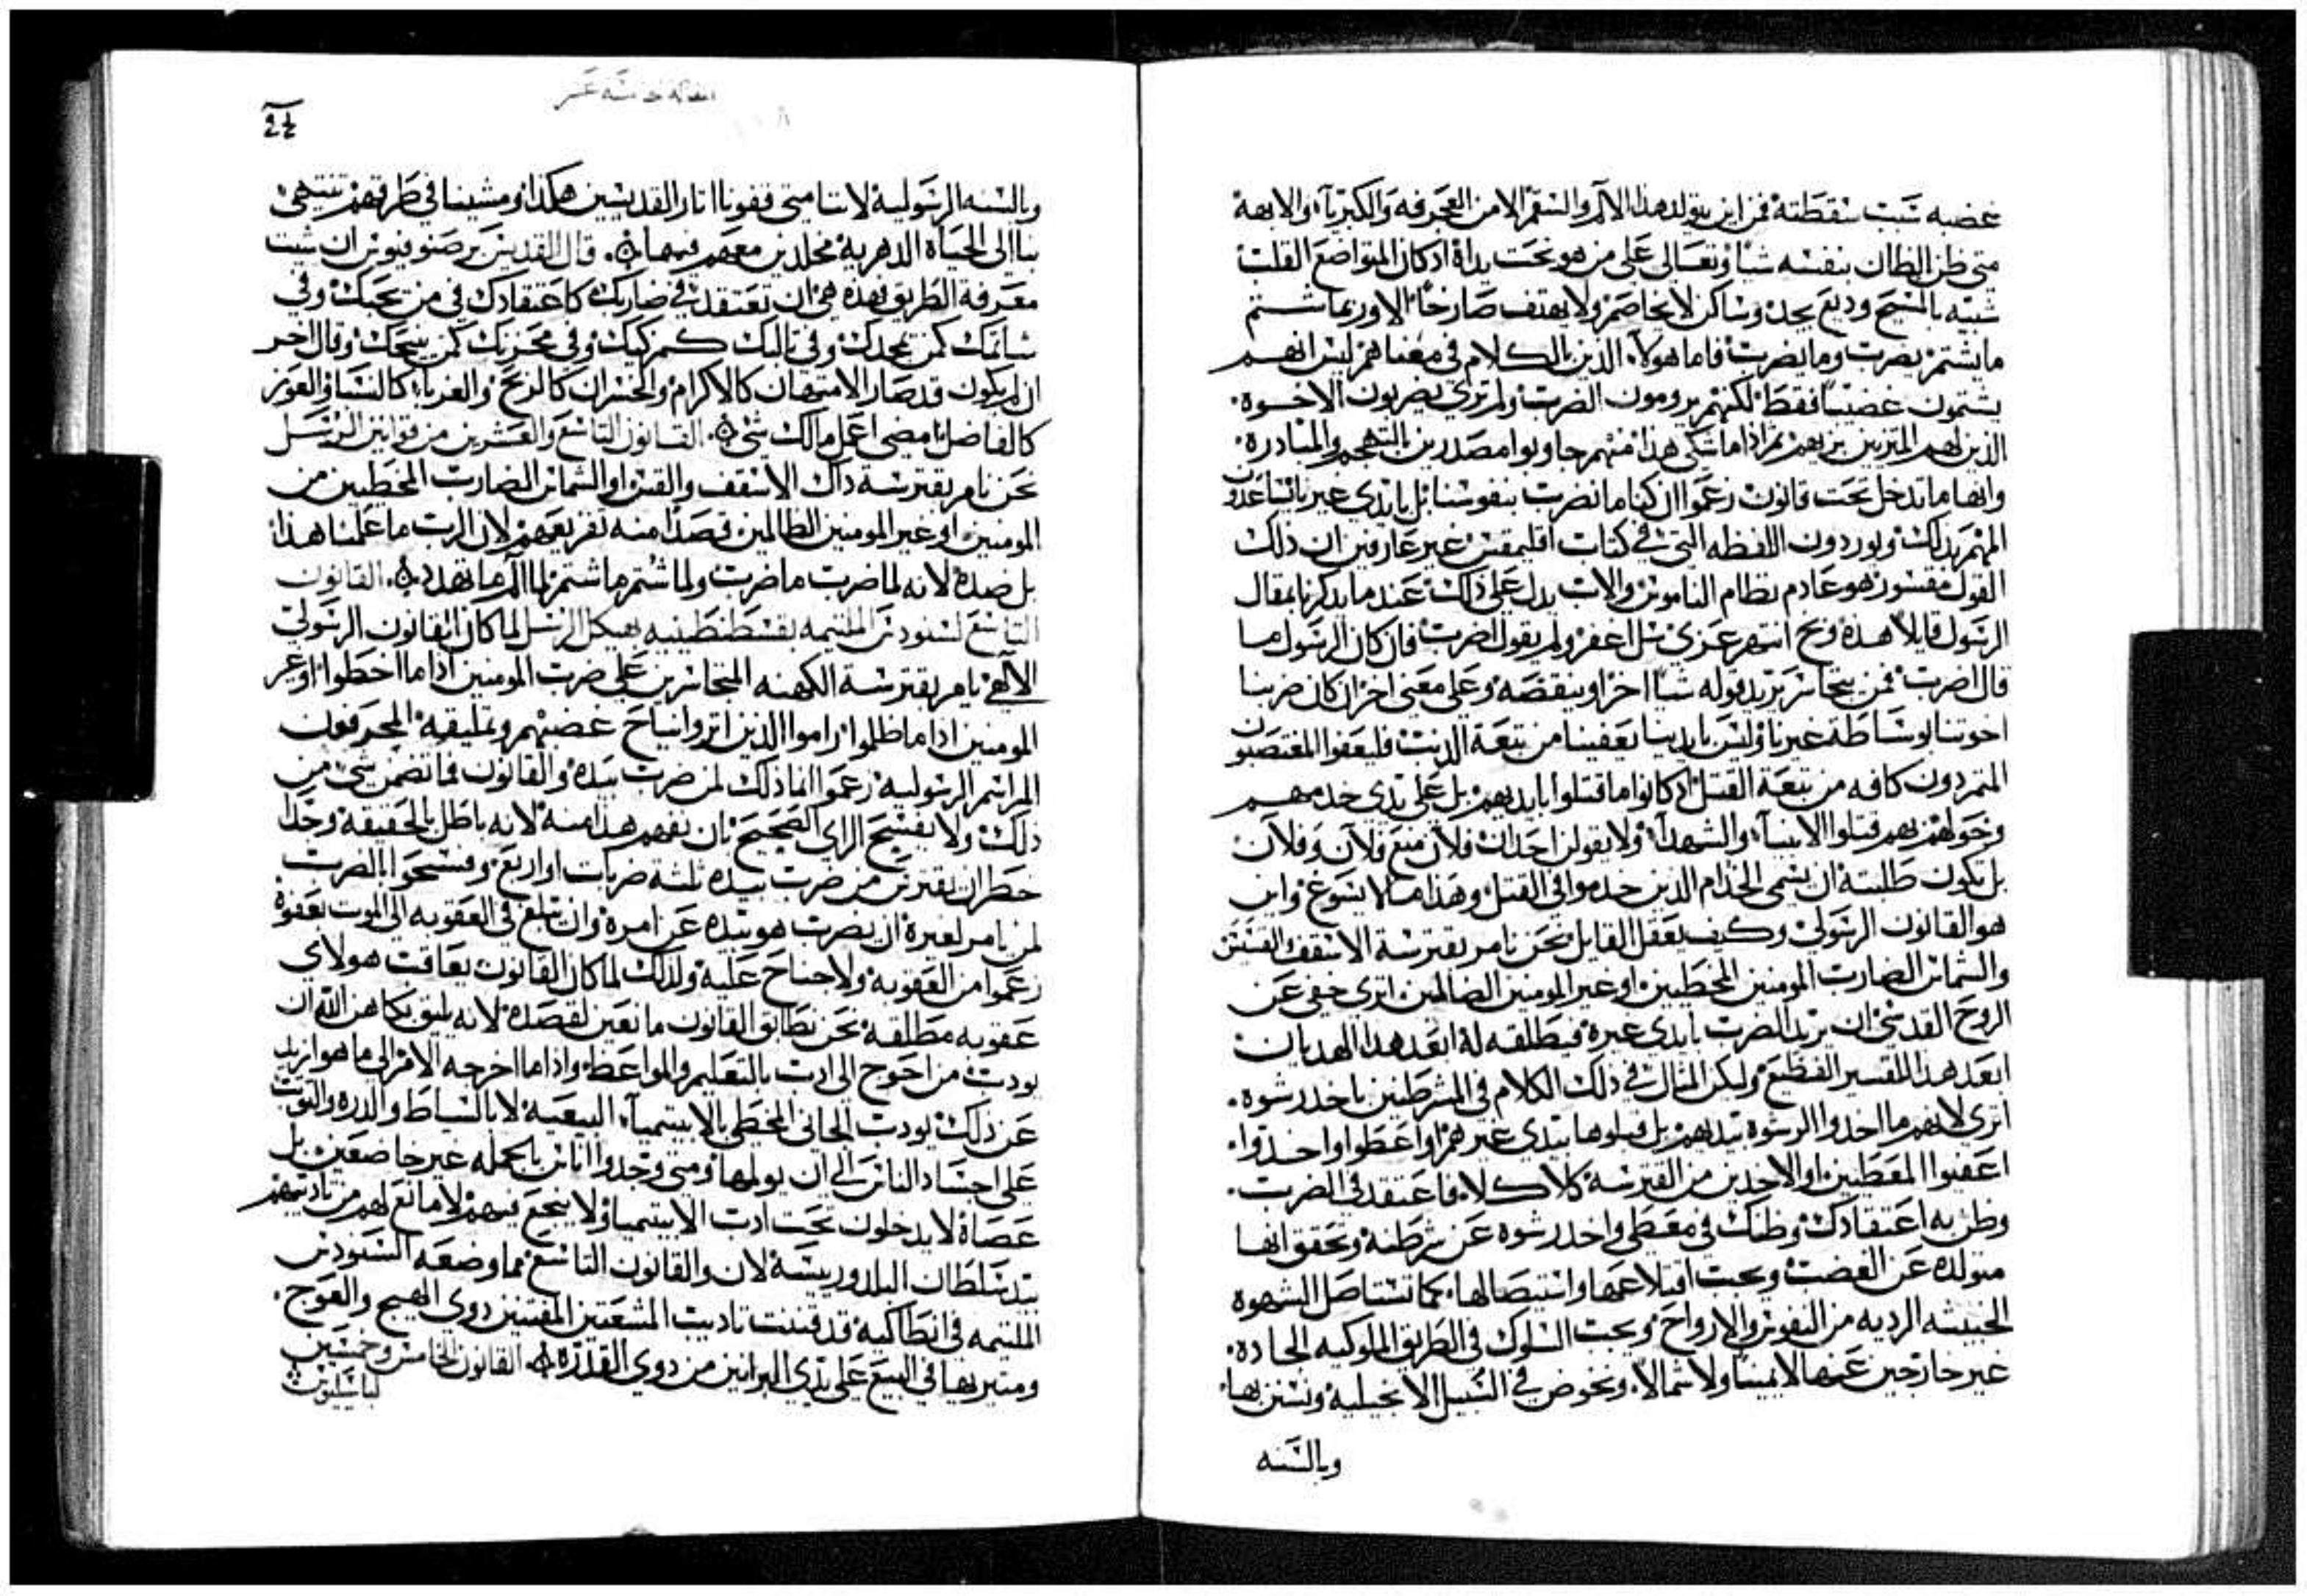 غضبه سبب سقطته فمن اين يتولد هذا الالم والسقم الا من العجرفه والكبريآء والابهة
متى ظن الظان بنفسه شياً وتعالى على من هو تحت يداة اذ كان المتواضع القلب
شبيه بالمسيح وديع يحد وساكن لا يخاصم ولا يهتف صارخاً الا وربما شتم
ما يشتم يضرب وما يضرب فاما هولاء الذين الكلام في معناهم ليس انهم
يشتمون غضباً فقط لكنهم يرومون الضرب ولم تزى يضربون الاخوه
الذين لهم المتزيين بزيهم ثم اذا ما شكى هذا منهم جاوبوا مصدرين بالتهجم والمبادرة
وانها ما تدخل تحت قانون زعموا ان كنا ما نضرب بنفوسنا بل بايدي غيرنا
المهم بذلك ويوردون اللفظه التي في كتاب اقليمقس غير عارفين ان ذلك
القول مفسود هو عادم نظام الناموس والاب يدل على ذلك عند ما يذكرنا بمقال
الرسول قايلاً هذه وبخ انتهر عزي سل اغفر ولم يقول اضرب فان كان الرسول ما
قال اضرب فمن يتجاسر يزيد قوله شياً اخر او ينقضه وعلى معنى اخر ان كان ضربنا
اخوتنا بوساطة غيرنا وليس بايدينا يعفينا من تبعة الذنب فليعفوا المغتصبون
المتمردون كافه من تبعة القتل اذ كانوا ما قتلوا بايديهم بل على يدي خدمهم
وخولهم بهم قتلوا الانبيآء والشهدآء ولا يقولن احد ان فلان منع فلان وفلان
بل يكون طلبته ان يسمى الخدام الذين خدموا في القتل وهذا مما لا يسوغ واين
هو القانون الرسولي وكيف يعقل القايل نحن نامر بقترسة الاسقف والقسس
والشماس الضارب المومنين المخطيين او غير المومنين الضالمين اترى خفي عن
الروح القدس ان يريد الضرب بايدي غيره فيطلقه له ابعد هذا الهديان
ابعد هذا التفسير الفظيع وليكن المثال في ذلك الكلام في المشرطنين باخذ رشوه
اترى لانهم ما اخذوا الرشوة بيديهم بل قبلوها بيدي غيرهم او اعطوا واخذوا
اعفيوا المعطيين او الاخذين من القترسه كلا كلا فاعتقد في الضرب
وظن به اعتقادك وظنك في معطى واخذ رشوه عن شرطنة وتحقق انها
متولدة عن الغضب ويجب اقتلاعها واستيصالها كما تستاصل الشهوة
الخبيثه الرديه من النفوس والارواح ويجب السلوك في الطريق الملوكيه الجادة
غير حارجين عنها لا يميناً ولا شمالاً ونخوض في السبيل الانجيلية ونستن بها
وبالسنه
وبالسنه الرسوليه لاننا متى قفونا اثار القديسين هكذا ومشينا في طرقهم تنتهي
بنا الى الحياة الدهرية مخلدين معهم فيها. قال القديس برصنوفيوس ان شيت
معرفة الطريق فهذه هي ان تعتقد في ضاربك كاعتقادك في من يحبك وفي
شاتمك كمن يمجدك وفي ثالبك كمزكيك وفي محزنك كمن ينيحك وقال اخر
ان لم يكون قد صار الامتهان كالاكرام والخسران كالربح والغربا كالنسا والعوز
كالفاضل امضي اعمل مالك شي. القانون التاسع والعشرين من قوانين الرسل
نحن نامر بقترسة ذاك الاسقف والقس او الشماس الضارب المخطيين من
المومنين او غير المومنين الظالمين قصداً منه تفزيعهم لان الرب ما علمنا هذا
بل ضده لانه لما ضرب ما ضرب ولما شتم ما شتم لما الم ما تهدد. القانون
التاسع لسنودس الملتيمه بقسطنطينيه بهيكل الرسل لما كان القانون الرسولي
الالهي يامر بقترسة الكهنه المتجاسرين على ضرب المومنين اذا ما اخطوا او غير
المومنين اذا ما ظلموا راموا الذين اثروا انياح غضبهم وتمليقه المحرفون
المراسم الرسوليه زعموا انما ذلك لمن ضرب بيده والقانون فما تضمن شي من
ذلك ولا يفسح الراي الصحيح بان يفهم هذا منه لانه باطل بالحقيقة وجداً
خطر ان يقترس من ضرب بيده ثلثه ضربات او اربع وفسحوا بالضرب
لمن يامر لغيرة ان يضرب هو بيده عن امرة وان تبلغ في العقوبه الى الموت تعفوة
زعموا من العقوبه ولا جناح عليه ولذلك لما كان القانون يعاقب هولاي
عقوبه مطلقة نحن نطابق القانون ما نعين لقصده لانه يليق بكاهن الله ان
يودب من احوج الى ادب بالتعليم والمواعظ واذا ما اخرجه الامر الى ما هو ازيد
عن ذلك يودب الجاني المخطي بالابيتيمياء البيعية لا بالسياط والدرة والتوب
على اجساد الناس الى ان يولمها ومتى وجدوا اناس بالجمله غير خاضعين بل
عصاة لا يدخلون تحت ادب الابيتيميا ولا ينجع فيهم لا مانع لهم من تاديبهم
بيد سلطان البلد وريسة لان والقانون التاسع مما وضعه السنودس
الملتيمه في انطاكيه قد قننت تاديب المشعتين المفتنين ذوي الهيج والعوج
ومثيريها في البيع على يدي البرانيين من ذوي القدرة. القانون الخامس وخمسين
لباسيليوس